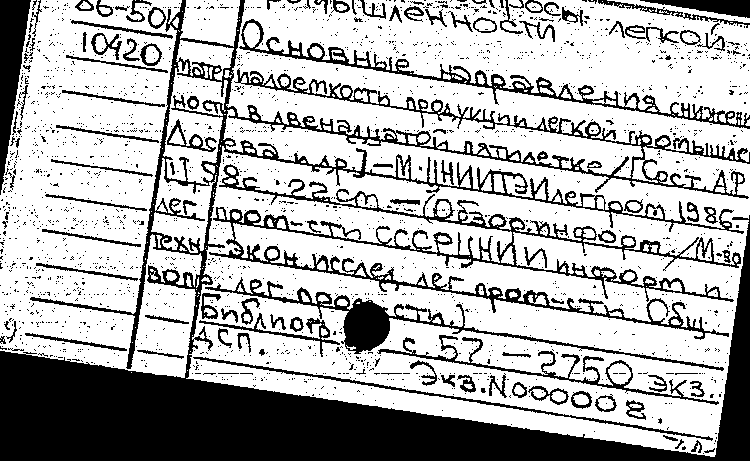 86-50К
вопросы легкой
промышленности.
10420
Основные направления снижен
материалоемкости продукции легкой промышле
ности в двенадцатой пятилетке / [Сост. А.Р.
Лосева и др.] – М.: ЦНИИТЭИлегпром, 1986.–
[I], 58с.; 22 cm. – (Обзор. информ. / М-во
лег. пром-сти СССР, ЦНИИ информ. и
техн.-экон. исслед. лег. пром-сти. Общ.
вопр. лег. пром-сти.)
Библиогр. с. 57. – 2750 экз.
ДСП.
Экз. N000008.